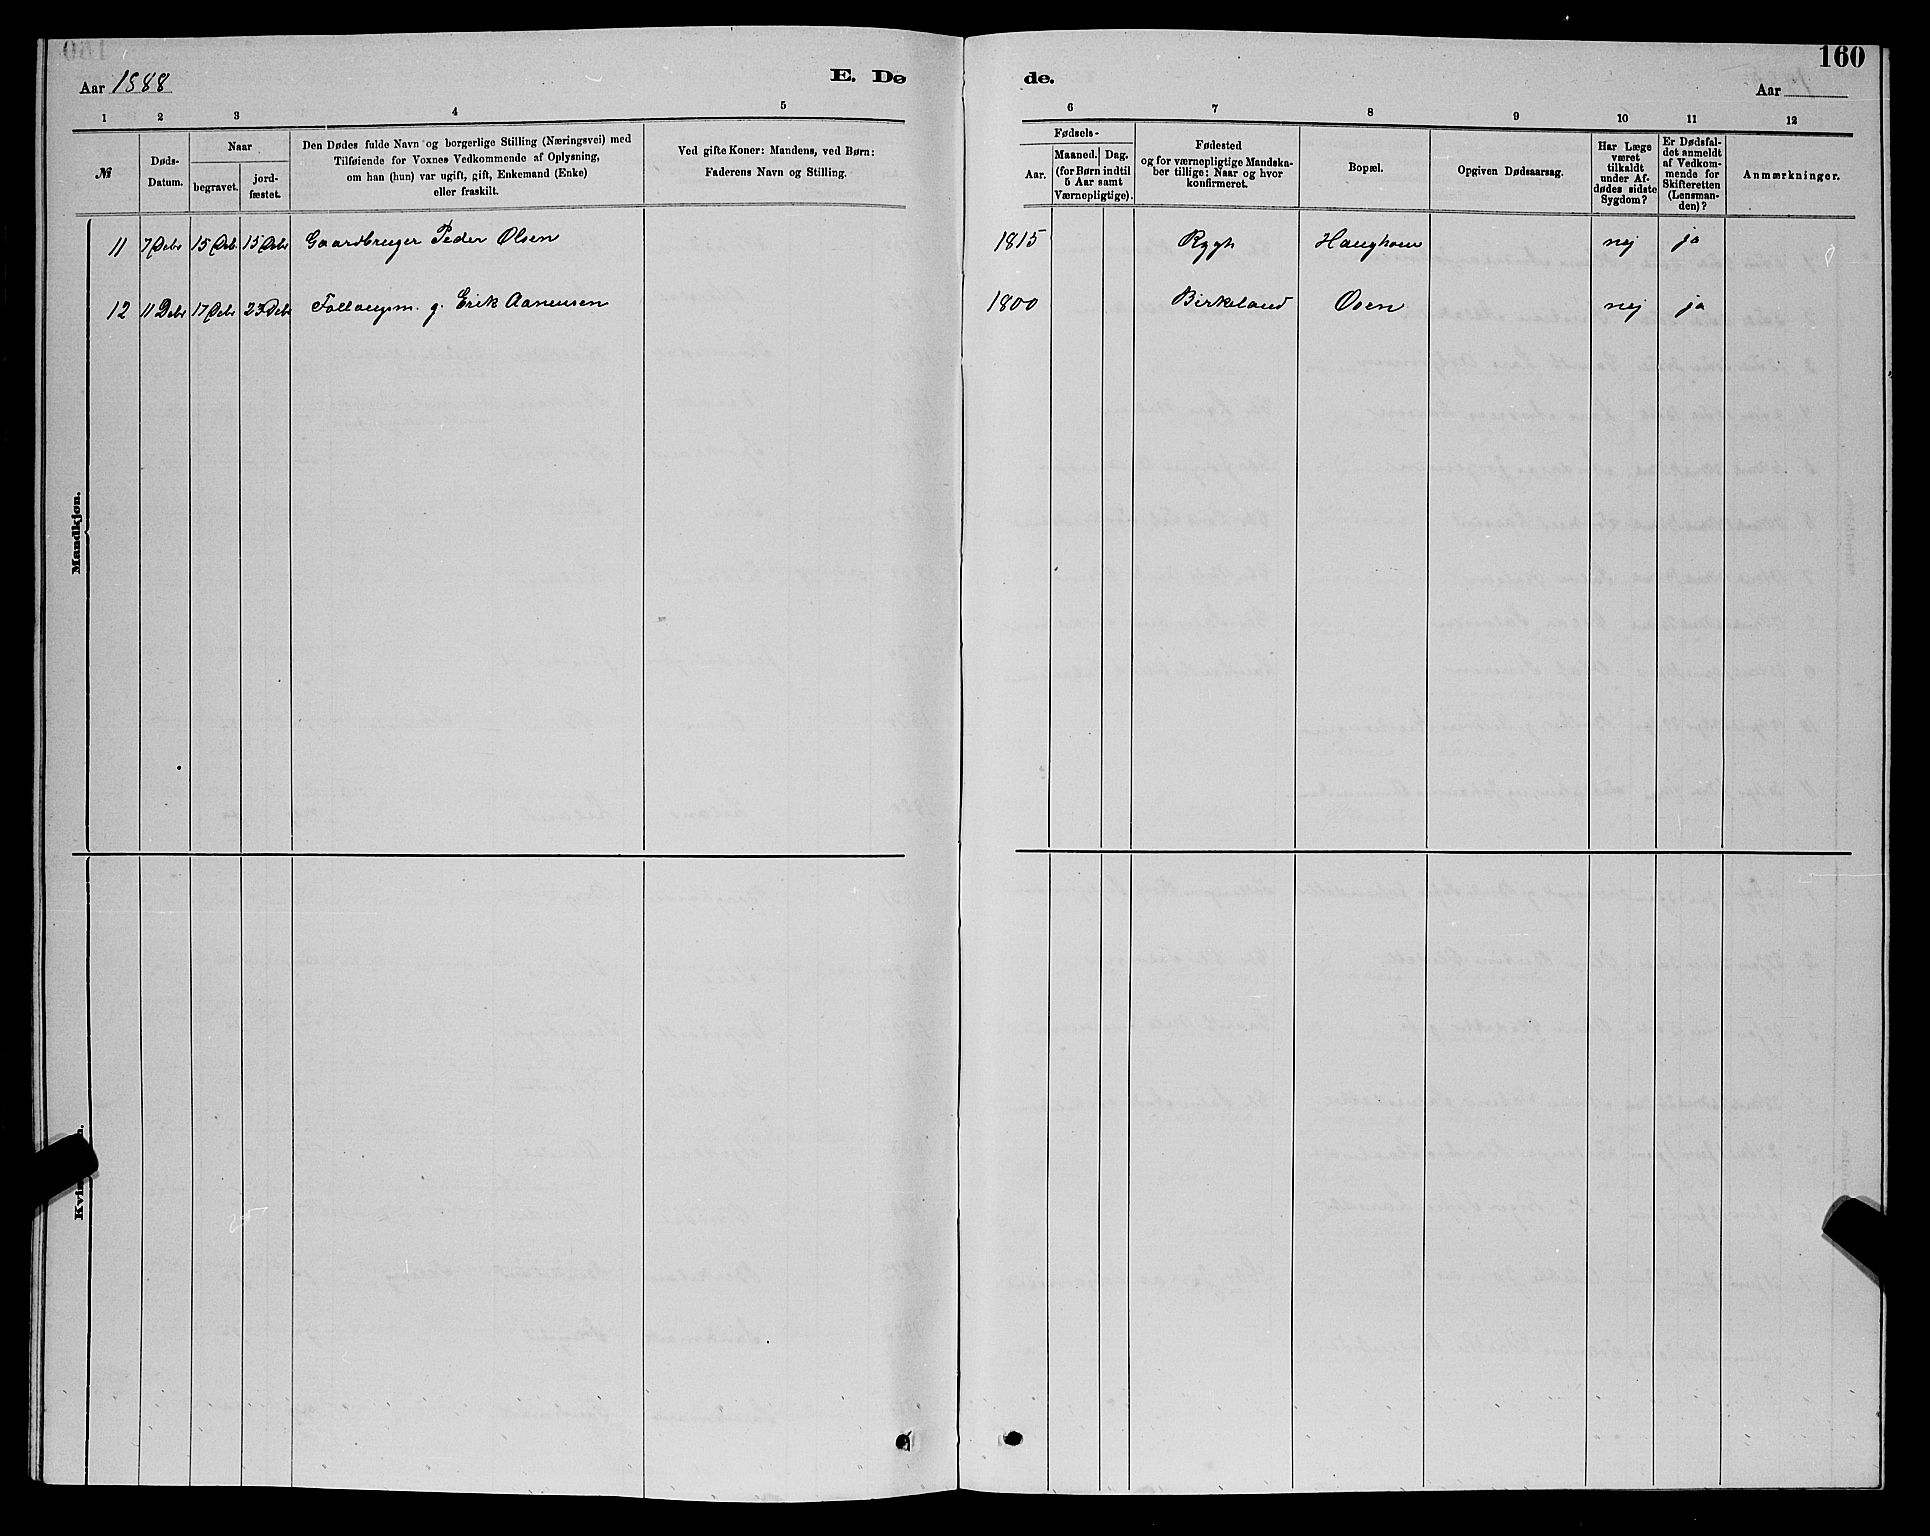 160
Aar 1888
E. Dø
de.
Aar
1 2 3 4 5
6 7 8 9 10 11 12
№
Døds-
Datum.
Naar
begravet.
jord-
fæstet.
Den Dødes fulde Navn og borgerlige Stilling (Næringsvei) med
Tilføiende for Voxnes Vedkommende af Oplysning,
om han (hun) var ugift, gift, Enkemand (Enke)
eller fraskilt.
Ved gifte Koner: Mandens, ved Børn:
Faderens Navn og Stilling.
Fødsels-
Aar.
Maaned. Dag.
(for Børn indtil
5 Aar samt
Værnepligtige).
Fødested
og for værnepligtige Mandska-
ber tillige: Naar og hvor
konfirmeret.
Bopæl.
Opgiven Dødsaarsag.
Har Læge
været
tilkaldt
under Af-
dødes sidste
Sygdom?
Er Dødsfal-
det anmeldt
af Vedkom-
mende for
Skifteretten
(Lensman-
den)?
Anmærkninger.
Mandkjøn.
11 7 Debr 15 Debr 15 Debr Gaardbruger Peder Olsen 1815 Rygh Haughom nej ja
12 11 Debr 17 Debr 23 Debr Follaugsm. g. Erik Aanensen 1800 Birkeland Osen nej ja